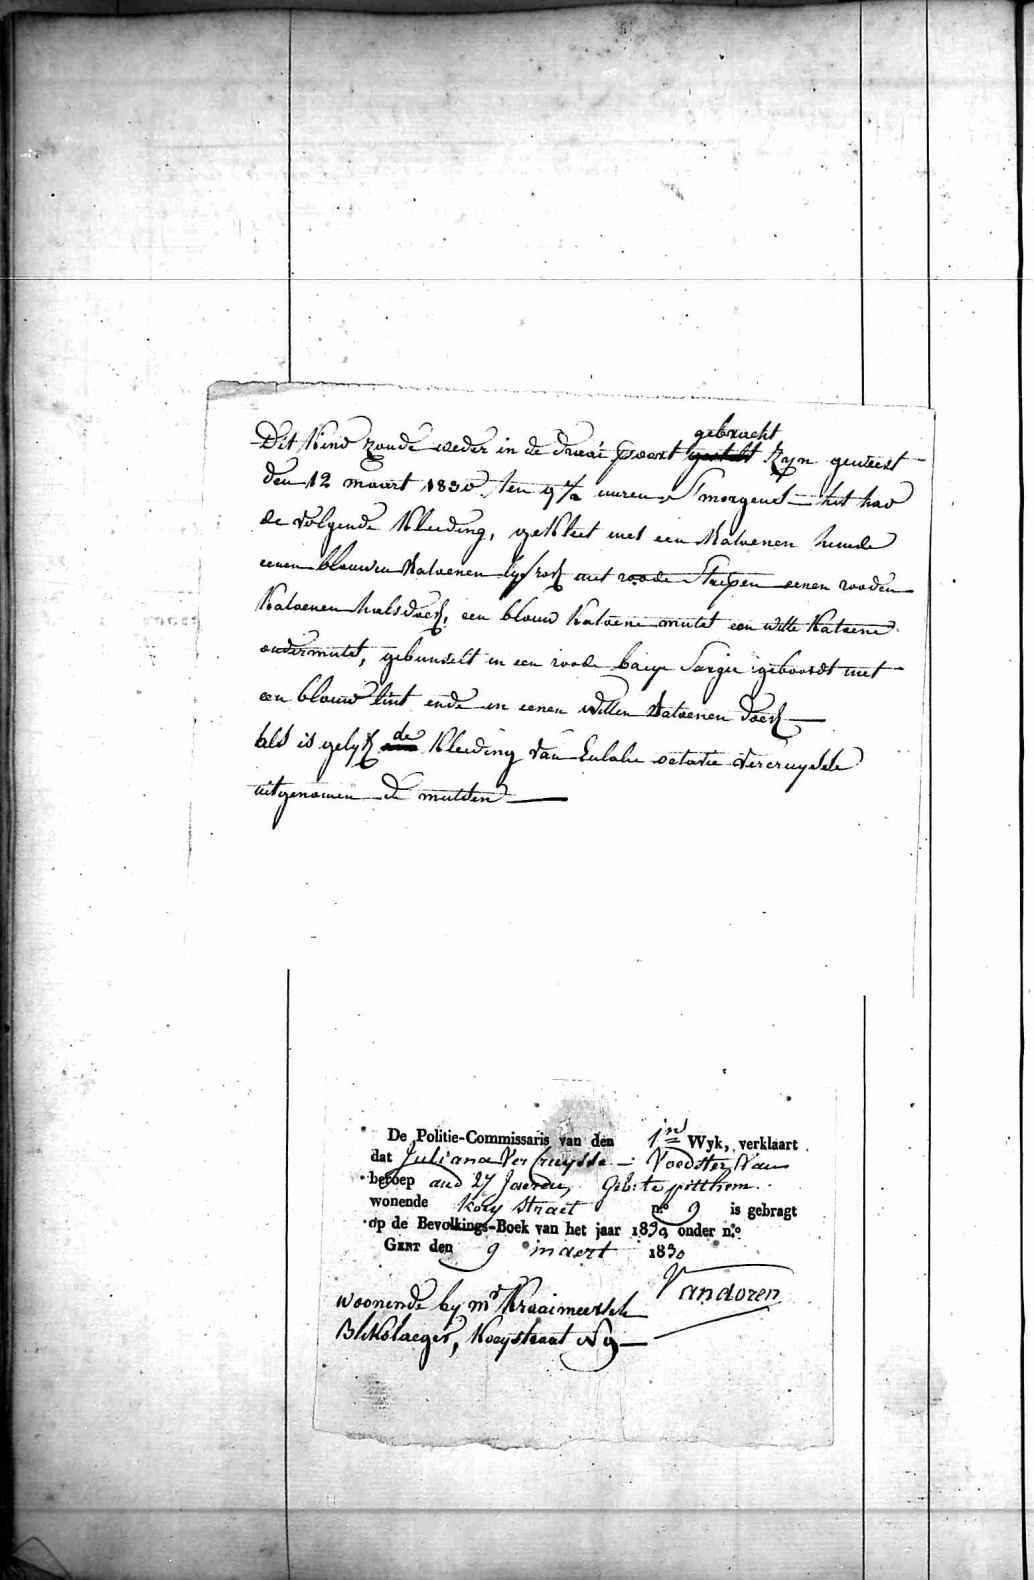 gebracht
Dit Kind zoude weder in de draai poort gestelt zyn geweest
den 12 maart 1830, ten 9 ½ uuren S'morgens — hit had
de volgende Kleeding, gekleet met een Katoenen hemde
eenen blauwen Katoenen lyfrok met roode Strepen eenen rooden
Katoenen halsdoek, een blouw Katoene mutst een witte Katoene
ondermutst, gebunselt in een roode baeye Sargie geboordt met
een blouw lint ende in eenen witten Katoenen doek —
als is gelyk de Kleeding van Eulalie octavie Vercruysse
uitgenomen de mutsen —
De Politie-Commissaris van den 1en Wyk, verklaart
dat Juliana Vercruysse — Voedster Van
beroep aud 27 Jaeren, Geb: te pitthem
wonende Koey Straet n.º 9 is gebragt
op de Bevolkings-Boek van het jaar 1830 onder n.º
GENT den 9 maert 1830
Vandoren
woonende by mr Kraaimeersch
Blekslaeger, Koeystraat N 9 —